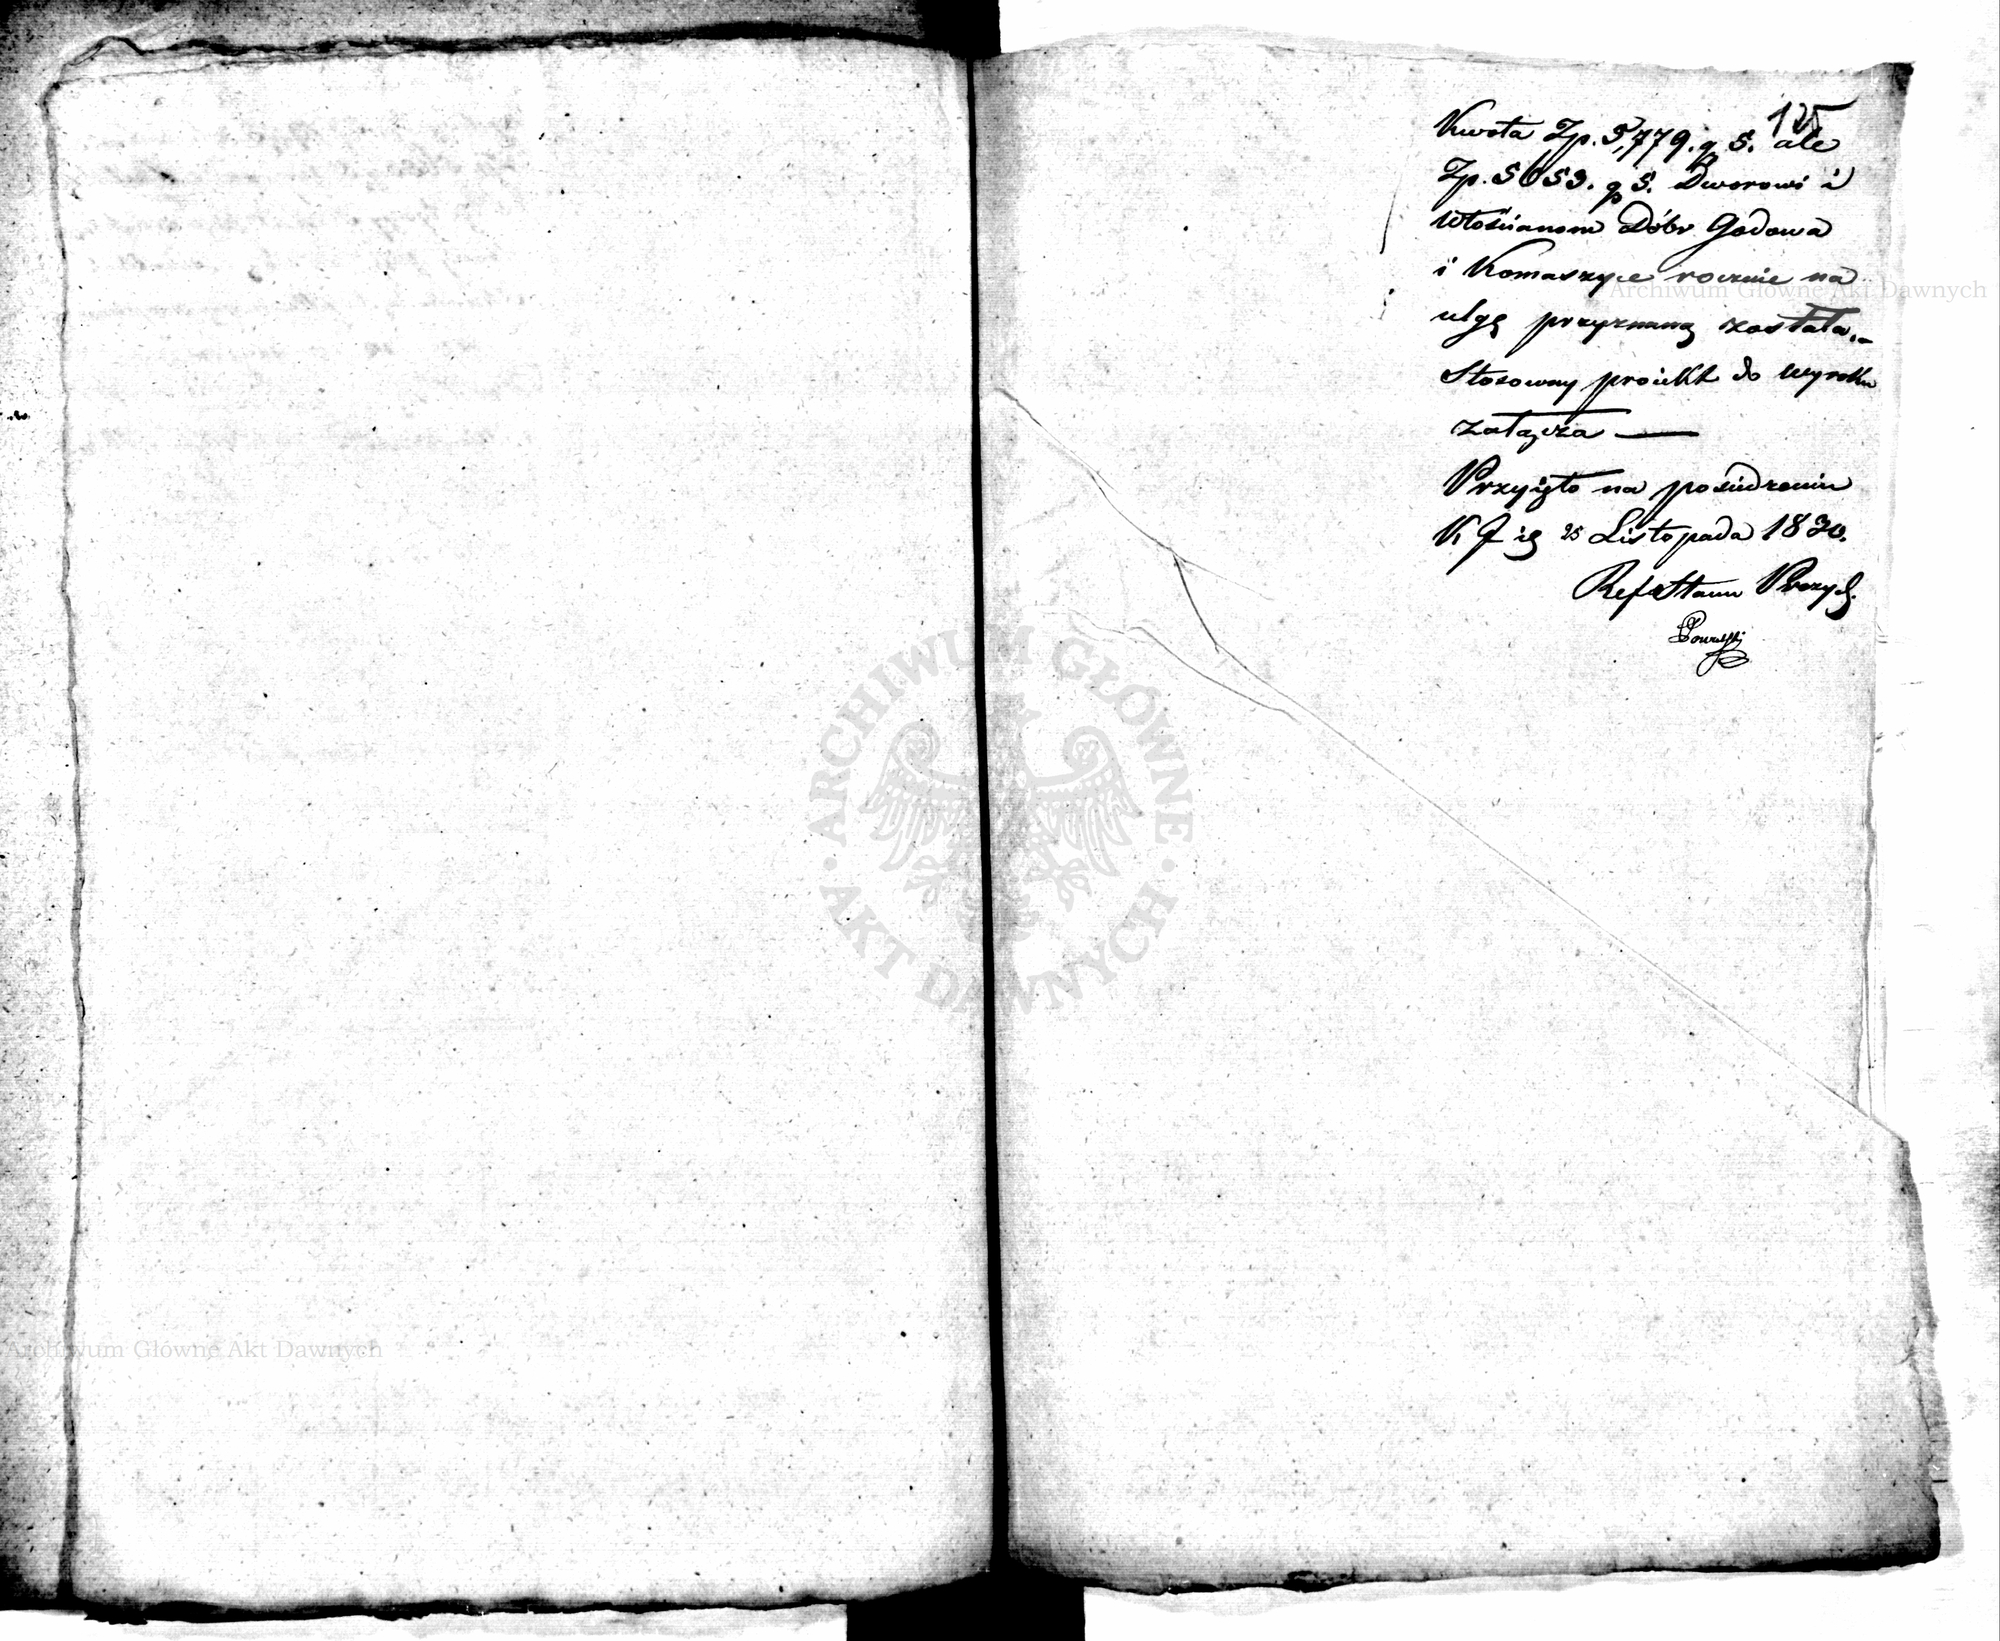 125
Kwota Zp. 5,779. g 5. ale
Zp. 5653. g 5. Dworowi i
Włościanom Dóbr Godowa
i Komaszyce rocznie na
ulgę przyznaną została.-
Stosowny proiekt do wyroku
załącza —
Przyięto na posiedzeniu
K 25 Listopada 1830.
Refer Stanu
Archiwum Główne Akt Dawnych
ARCHIWUM GŁÓWNE
· AKT DAWNYCH ·
Archiwum Główne Akt Dawnych